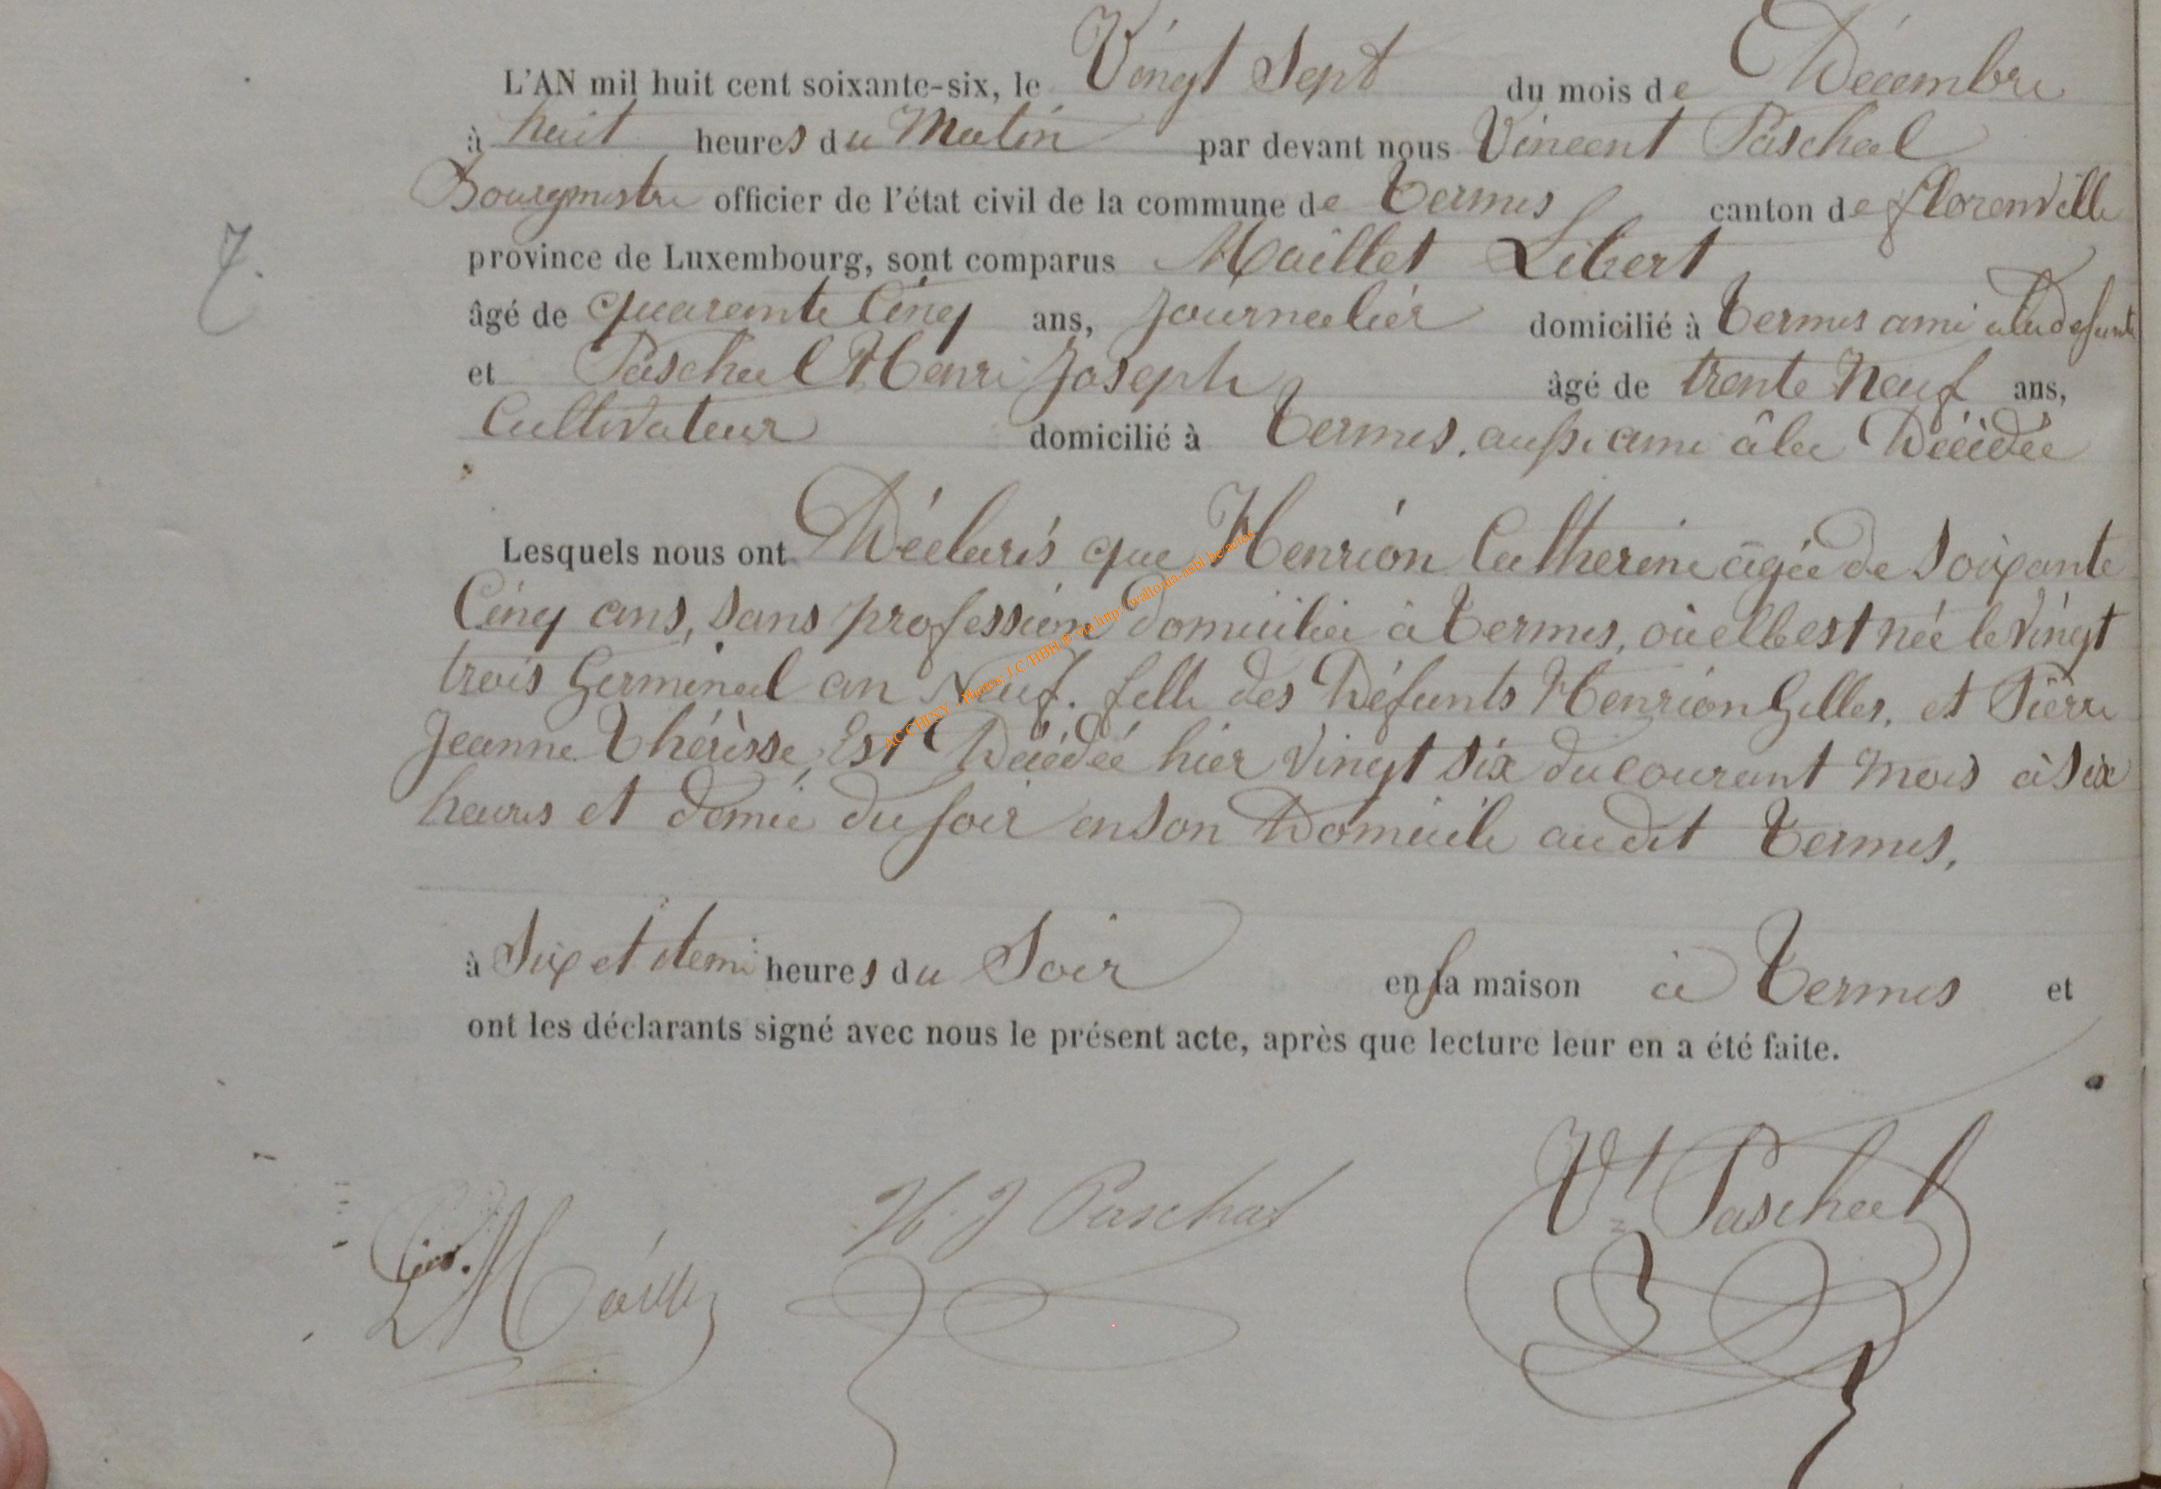 L'AN mil huit cent soixante-six, le Vingt Sept du mois de Décembre
à huit heures du Matin par devant nous Vincent Paschal
Bourgmestre officier de l'état civil de la commune de Termes canton de florenville
province de Luxembourg, sont comparus Maillet Libert
âgé de quarante Cinq ans, Journalier domicilié à Termes ami à la défunte
et Paschal Henri Joseph âgé de trente Neuf ans,
Cultivateur domicilié à Termes, aussi ami à la Décédée
7.
Lesquels nous ont Déclarés que Henrion Catherine âgée de Soixante
Cinq ans, Sans profession domiciliée à Termes, où elle est née le Vingt
trois Germinal an Neuf. fille des Défunts Henrion Gilles, et Pierre
Jeanne Thérèsse, Est Décédée hier Vingt Six du courant mois à Six
heures et demie du soir en son Domicile au dit Termes,
à Six et demi heures du Soir en sa maison à Termes et
ont les déclarants signé avec nous le présent acte, après que lecture leur en a été faite.
L Maillet H. J Paschal Vt Paschal
ACCHHXY Photos J.C/HBH.® via http://wallonia-asbl.be/actes